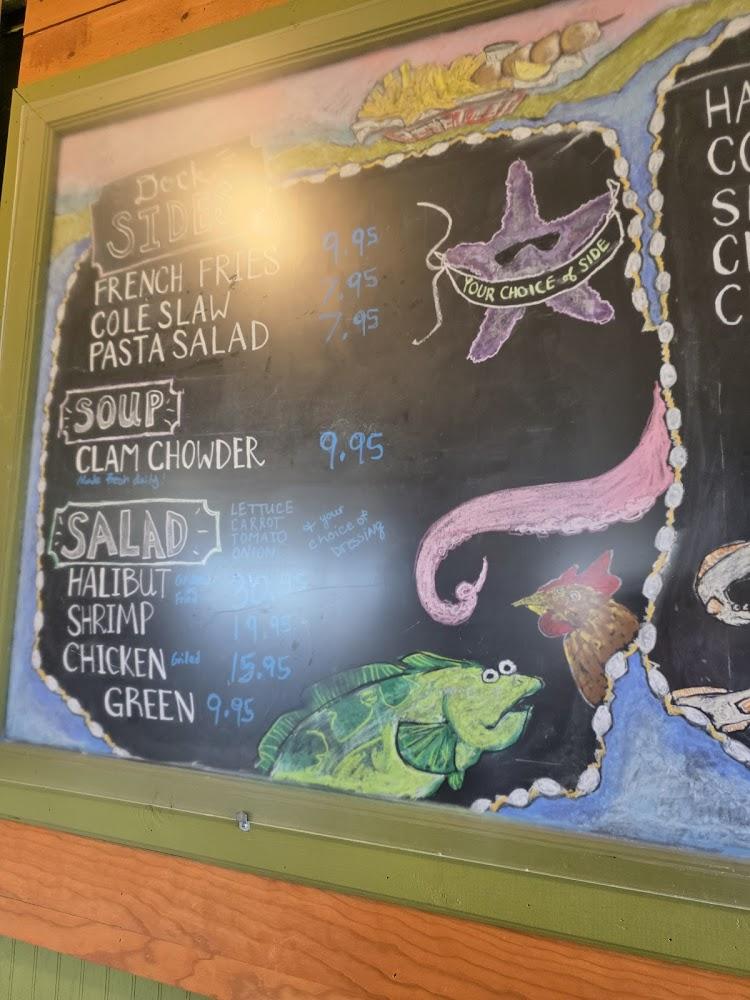 Deck
SIDES
FRENCH FRIES 9.95
COLE SLAW 7.95
PASTA SALAD 7.95
YOUR CHOICE of SIDE
SOUP
CLAM CHOWDER 9.95
Made fresh daily!
SALAD
LETTUCE
CARROT
TOMATO
ONION
+ your
choice of
Dressing
HALIBUT
Fried
SHRIMP 19.95
CHICKEN Grilled 15.95
GREEN 9.95
HA
CO
S
C
C